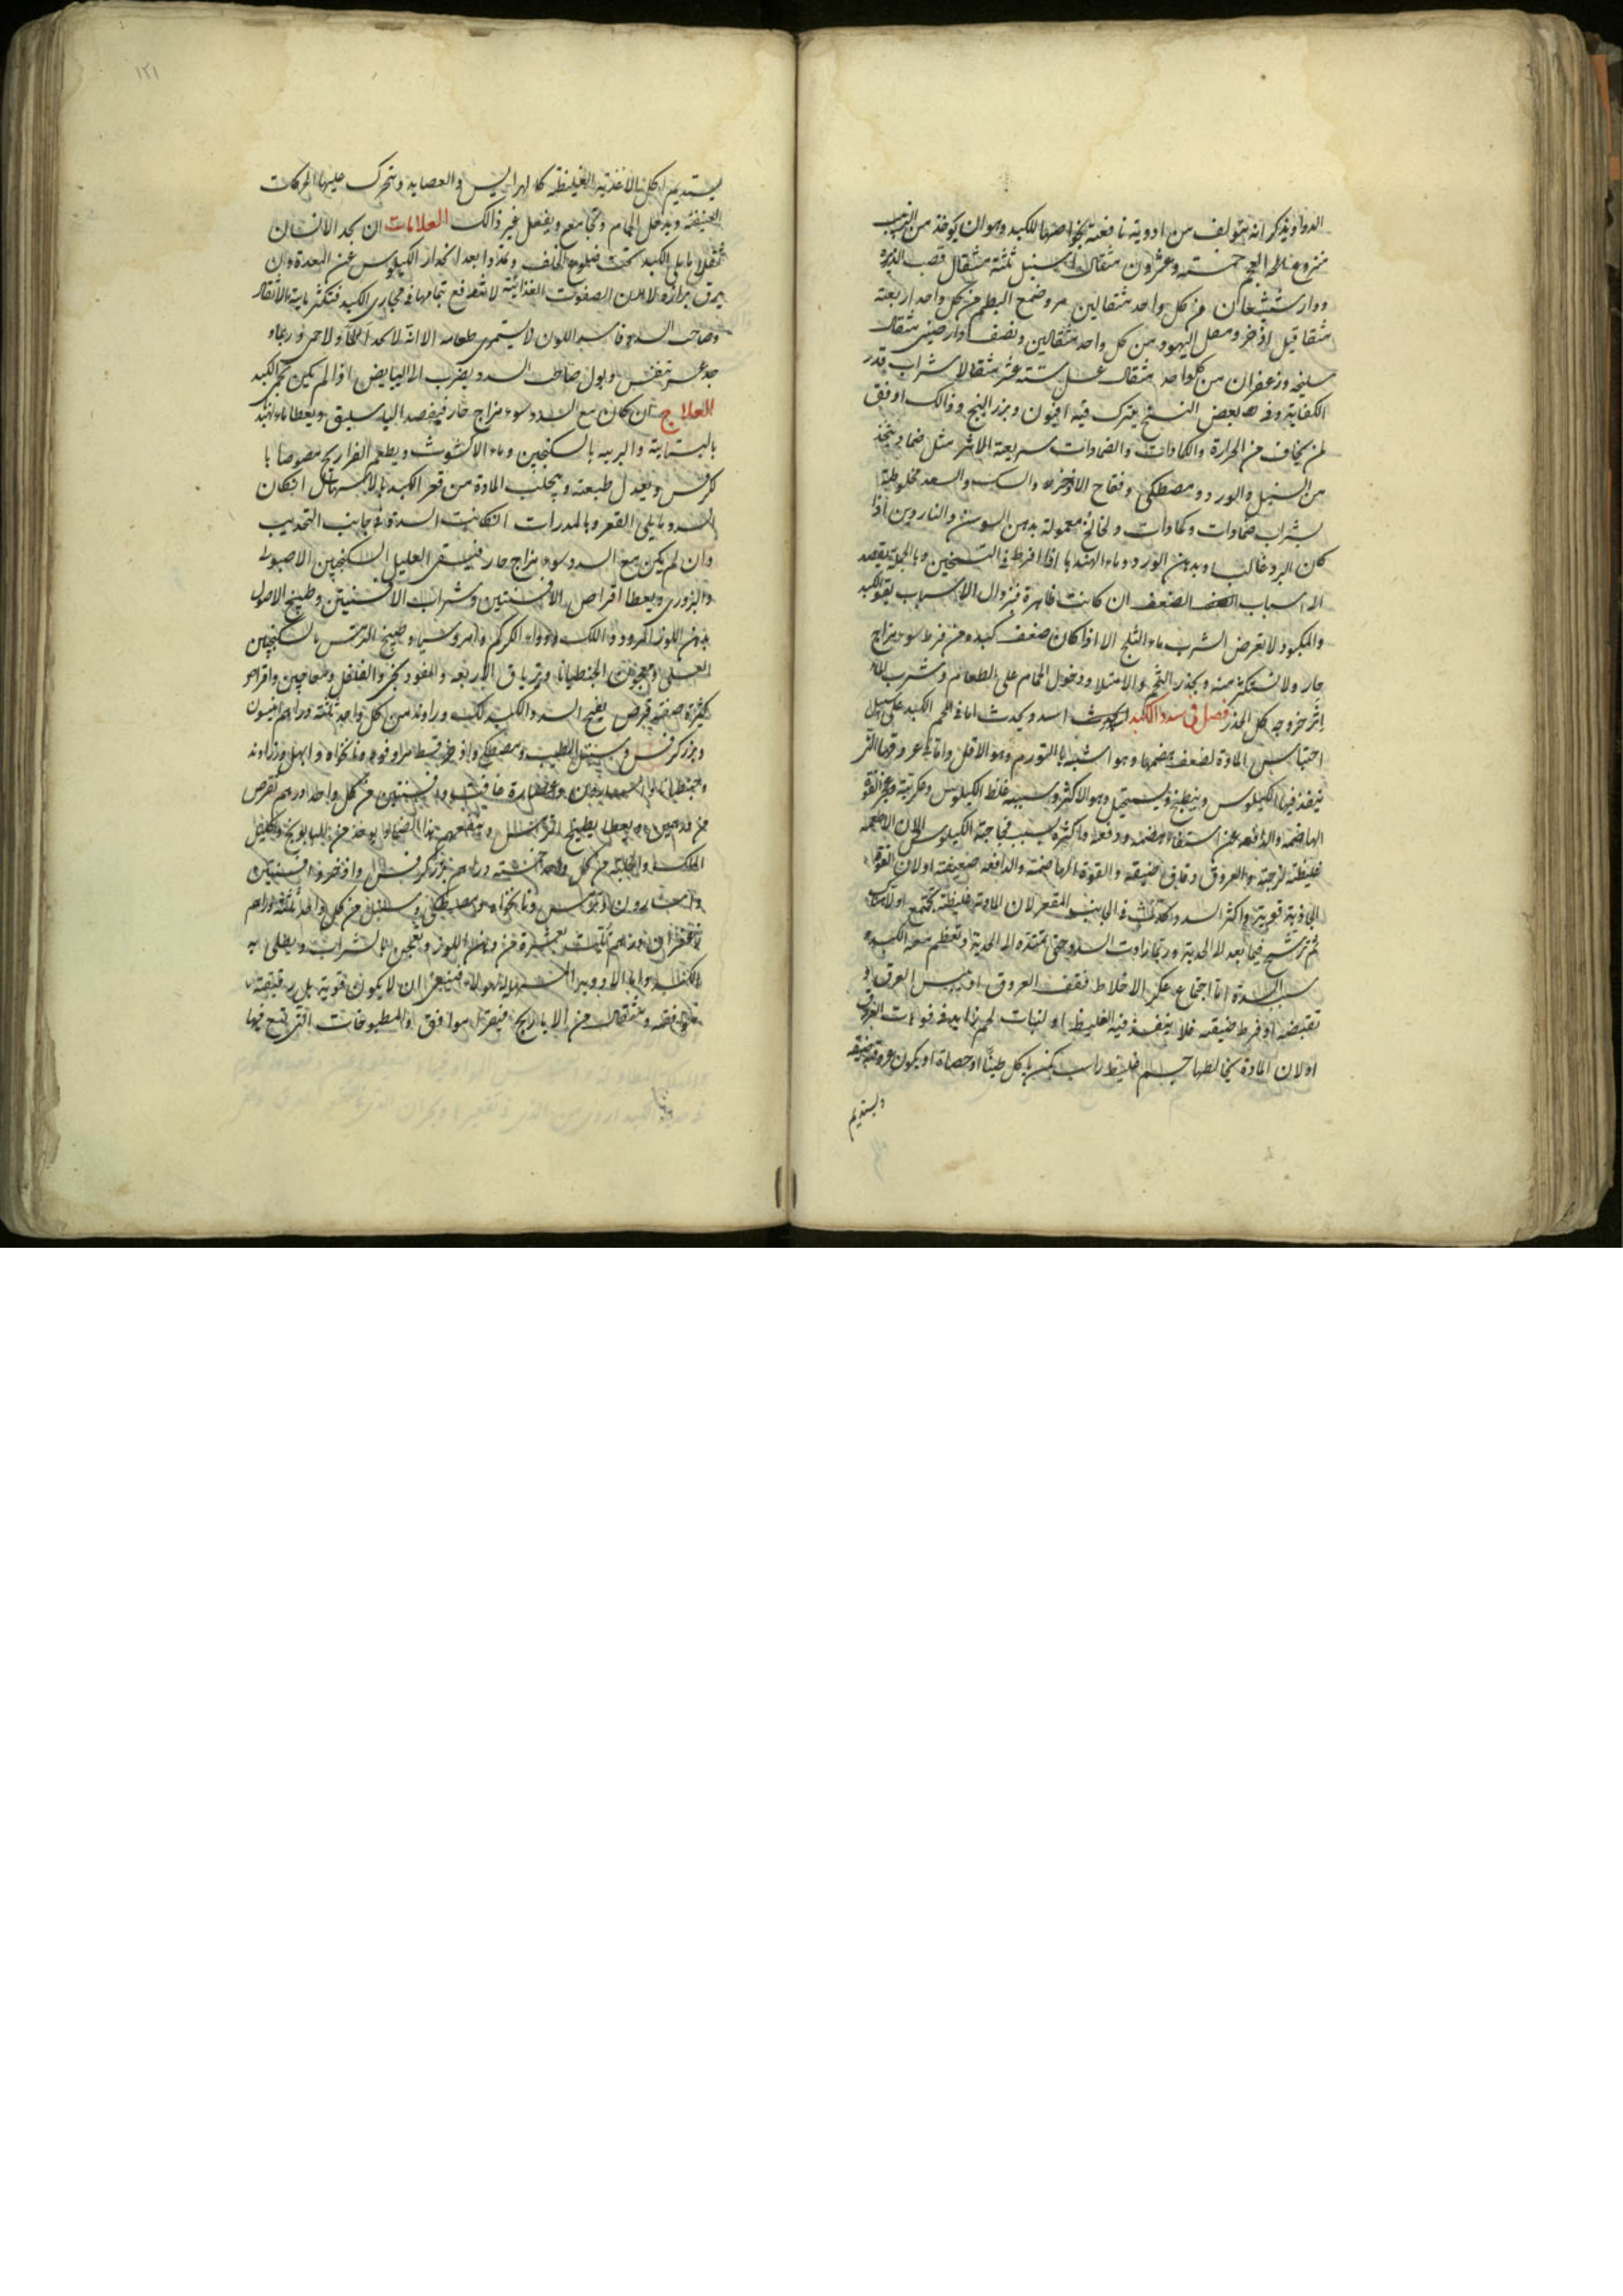 الدواء يذكر انه يتولف من ادوية نافعة بخواصها للكبد وهو ان يوخذ من الزبيب
منزوع العجم خمسة وعشرون مثقال سنبل ثلثة مثقال قصب الذريرة
ودارشيشعان من كل واحد مثقالين مر وضمغ البطم من كل واحد اربعة
مثقاقيل اذخر ومقل اليهود من كل واحد مثقالين ونصف دارصيني مثقال
سليخه وزعفران من كلواحد مثقال عسل ستة عشر مثقالا شراب قدر
الكفاية وفي بعض النسخ يترك فيه افيون وبزر البنج وذالك اوفق
لمن يخاف من الحرارة والكمادات والضمادات سريعة الاثر مثل ضماد يتخذ
من السنبل والورد ومصطكي وفقاح الاذخر والسك والسعد مخلوطة
بشراب ضمادات وكمادات ولخالخ معمولة بدهن السوسن والناردين اذا
كان البرد غالبا وبدهن الورد وماء الهندبا اذا افرط في التسخين وبالجملة يقصد
الى اسباب الضعف ان كانت ظاهرة فبزوال الاسباب يقوى الكبد
والمكبود لا يعرض لشرب ماء الثلج الا اذا كان ضعف كبده من فرط سوء مزاج
حار ولا يستكثر منه ويحذر التخم والامتلا ودخول الحمام على الطعام وشرب الماء
اثر خروجه كل الحذر فصل في سدد الكبد السدد يحدث اما في لحم الكبد على سبيل
احتباس المادة لضعف هضمها وهو اشبه بالتورم وهو الاقل واما في عروقها التي
ينفذ فيها الكيلوس وينطبخ ويستحيل وهو الاكثر وسببه غلظ الكيلوس وعكريته وعجز القوة
الهاضمة والدافعة عن استيفاء هضمه ودفعه واكثره بسبب فجاجة الكيلوس لان الاطعمه
غليظة لزجة والعروق دقاق ضيقه والقوة الهاضمة والدافعه ضعيفة اولان القوة
الجاذبة قوية واكثر السدد تحدث في الجانب المقعر لان المادة غليظة تجتمع اولا هناك
ثم ترشح فيما بعد الى الحدبة وربما زادت السدد حتى تمتد الى الحدبة وتعظم معه الكبد
سبب السدة اما اجتماع عكر الاخلاط فقف العروق او يبس العروق او
تقبضه او فرط ضيقه فلا ينفذ فيه الغليظ او لنبات لحم زايد في فوهات العروق
اولان المادة يخالطها جسم غليظ راسب كمن ياكل طينا او حصاة او يكون عروقه ضيقه
ويستديم
١٢١
يستديم اكل الاغذية الغليظة كالهرايس والعصايد ويتحرك عليها الحركات
العنيفة ويدخل الحمام ويجامع ويفعل غير ذالك العلامات ان يجد الانسان
ثقلا مما يلي الكبد تحت ضلوع الخلف وتمددا بعد انحدار الكيلوس عن المعدة وان
يرق برازه لان الصفوت الغذائية لا تندفع بتمامها في مجاري الكبد فتكثر مايية الاثقال
وصاحب السدد فاسد اللون لا يستمري طعامه الا انه لا يجد الما ولا حمى وربما
وجد عسر تنفس وبول صاحب السدد يضرب الى البياض اذا لم يكن لحم الكبد
العلاج ان كان مع السدد سوء مزاج حار فيفصد الباسليق ويعطا ماء الهندبا
البستانية والبرية بالسكنجبين وماء الاكشوث ويطعم الفراريج مصوصا با
كرفس ويعدل طبيعته ويجلب المادة من قعر الكبد بالاسهال ان كان
السدد مما يلي القعر وبالمدرات ان كانت السدة في جانب التحديب
وان لم يكن مع السدد سوء مزاج حار فيسقى العليل السكنجبين الاصولي
والبزوري ويعطا اقراص الافسنتين وشراب الافسنتين وطبيخ الاصول
بدهن اللوز المر ودواء اللك ودواء الكركم وامروسيا وطبيخ الترمس بالسكنجبين
العسلي ومعجون الجنطيانا وترياق الاربعة والفودنجي والفلفلي ومعاجين واقراص
كثيرة صفة قرص يفتح السدد الكبد لك وراوند من كل واحد ثلثة دراهم انيسون
وبزر كرفس وسنبل الطيب ومصطكي واذخر قسط مر وفوه ونانخواه وابهل وزراوند
وجنطيانا واسارون وعصارة غافث وافسنتين من كل واحد درهم تقرص
من درهمين ويبلع بطبيخ الترمس وينفع هذا الضماد يوخذ من البابونج واكليل
الملك والحلبة من كل واحد خمسة دراهم بزر كرفس واذخر وافسنتين
واسارون وترمس ونانخواه ومصطكي وسنبل من كل واحد ثلثة دراهم
زعفران درهم يلت بعشرة من دهن اللوز ويعجن بالشراب ويطلى به
الكبد واما الادوية المسهلة لهولاء فينبغي ان لا يكون قوية بل رقيقة
موافقه ومثقال من الايارج فيقرا موافق والمطبوخات التي تقع فيها